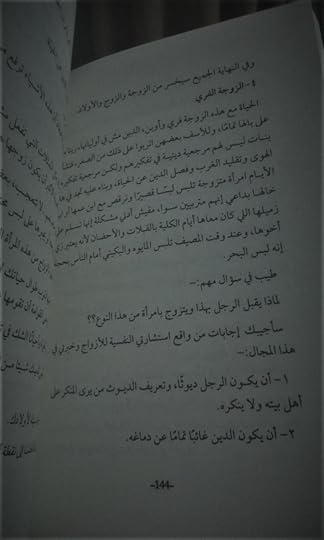 وفي النهاية الجميع سيخسر من الزوجة والزوج والأولاد.
٤- الزوجة الفري
الحياة مع هذه الزوجة فري وأوبن، الدين مش في أولوياتها،
على بالها تمامًا، وللأسف بعضهن اتربوا على ذلك من الصغر،
بنات ليس لهم مرجعية دينية في تفكيرهم ولكن مرجعية تفكيرهم
الهوى وتقليد الغرب وفصل الدين عن الحياة، وبناء عليه تجد في هذه
الأيام امرأة متزوجة تلبس لبسًا قصيرًا وترقص مع ابن عمها أو ابن
خالها بداعي إنهم متربيين سوا، مفيش أدنى مشكلة إنها تسلم على
زميلها اللي كان معاها أيام الكلية بالقبلات والأحضان لأنه يعتبر زي
أخوها، وعند وقت المصيف تلبس المايوه والبكيني أمام الناس بحجة
إنه لبس البحر.
طيب في سؤال مهم:-
لماذا يقبل الرجل بهذا ويتزوج بامرأة من هذا النوع؟؟
سأجيبك إجابات من واقع استشاراتي النفسية للأزواج وخبرتي في
هذا المجال:-
١- أن يكون الرجل ديوثًا، وتعريف الديوث من يرى المنكر على
أهل بيته ولا ينكره.
٢- أن يكون الدين غائبًا تمامًا عن دماغه.
-144-